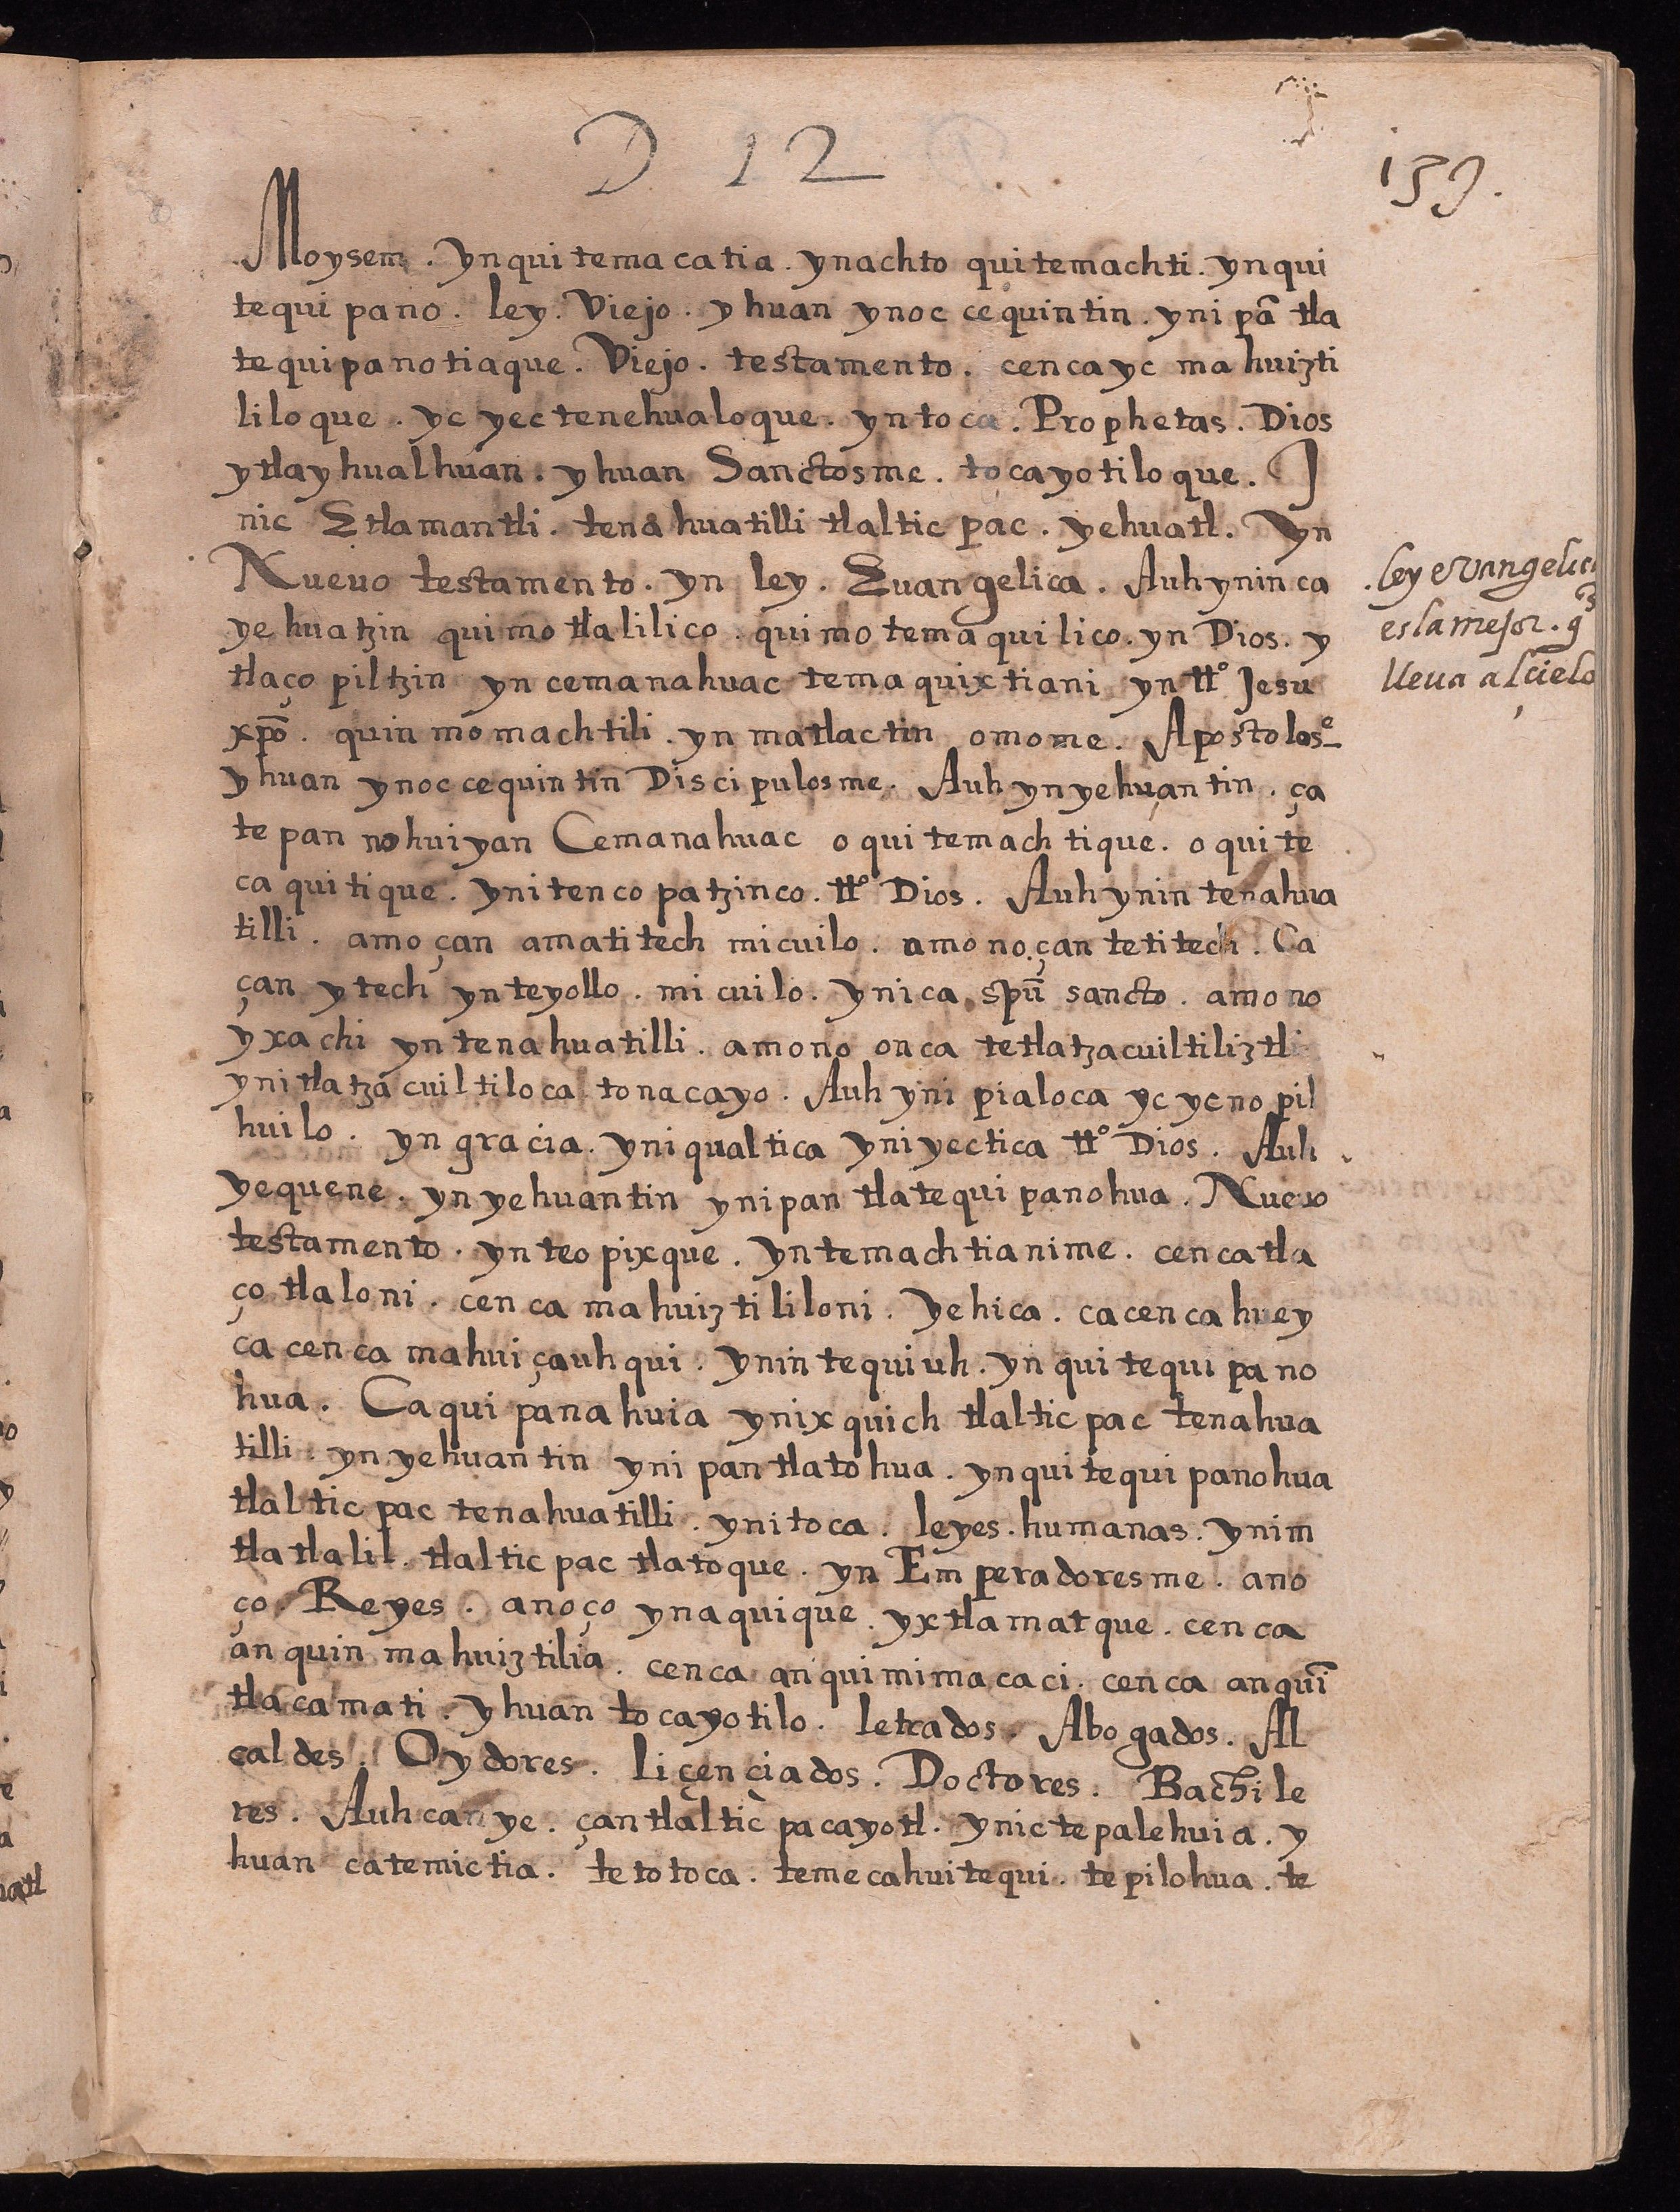 D 12
139.
Moysem. yn quitemacatia. ynachto quitemachti. yn qui
tequipano. ley. Viejo. yhuan ynoc cequintin. ynipā tla
tequipanotiaque. Viejo. testamento. cencayc mahuizti
liloque. yc yectenehualoque. yntoca. Prophetas. Dios
ytlayhualhuan. yhuan Sanctosme. tocayotiloque. I
nic Etlamantli. tenahuatilli tlalticpac. yehuatl. Yn
Nueuo testamento. yn ley. Euangelica. Auh ynin ca
yehuatzin quimotlalilico. quimotemaquilico. yn Dios. y
tlaçopiltzin yn cemanahuac temaquixtiani yn ttº Jesu
xpō. quinmomachtili. yn matlactin omome. Apostolosᵉ
yhuan ynoc cequintin Discipulosme. Auh ynyehuantin. ça
tepan nohuiyan Cemanahuac oquitemachtique. oquite
caquitique. ynitencopatzinco. ttº Dios. Auh ynin tenahua
tilli. amo çan amatitech micuilo. amono çan tetitech. Ca
çan ytech ynteyollo. micuilo. ynica spū sancto. amono
yxachi yntenahuatilli. amono onca tetlatzacuiltiliztli
ynitlatzacuiltiloca tonacayo. Auh yni pialoca yc ycnopil
huilo. yn gracia. yniqualtica yniyectica ttº Dios. Auh
yequene. yn yehuantin ynipan tlatequipanohua. Nueuo
testamento. yn teopixque. yntemachtianime. cencatla
çotlaloni. cenca mahuiztililoni. Yehica. cacenca huey
cacenca mahuiçauhqui. ynintequiuh. yn quitequipano
hua. Caquipanahuia ynixquich tlalticpac tenahua
tilli. yn yehuantin ynipan tlatohua. ynquitequipanohua
tlalticpac tenahuatilli. ynitoca. leyes. humanas. ynim
tlatlalil. tlalticpac tlatoque. yn Emperadoresme. ano
ço. Reyes. anoço ynaquique. yxtlamatque. cenca
anquinmahuiztilia. cenca anquimimacaci. cenca anquī
tlacamati. yhuan tocayotilo. letrados. Abogados. Al
caldes. Oydores. Liçençiados. Doctores. Bachile
res. Auh canye. çan tlalticpacayotl. ynic tepalehuia. y
huan catemictia. tetotoca. temecahuitequi. tepilohua. te
ley evangelica
es la mejor. q̄
lleua al cielo